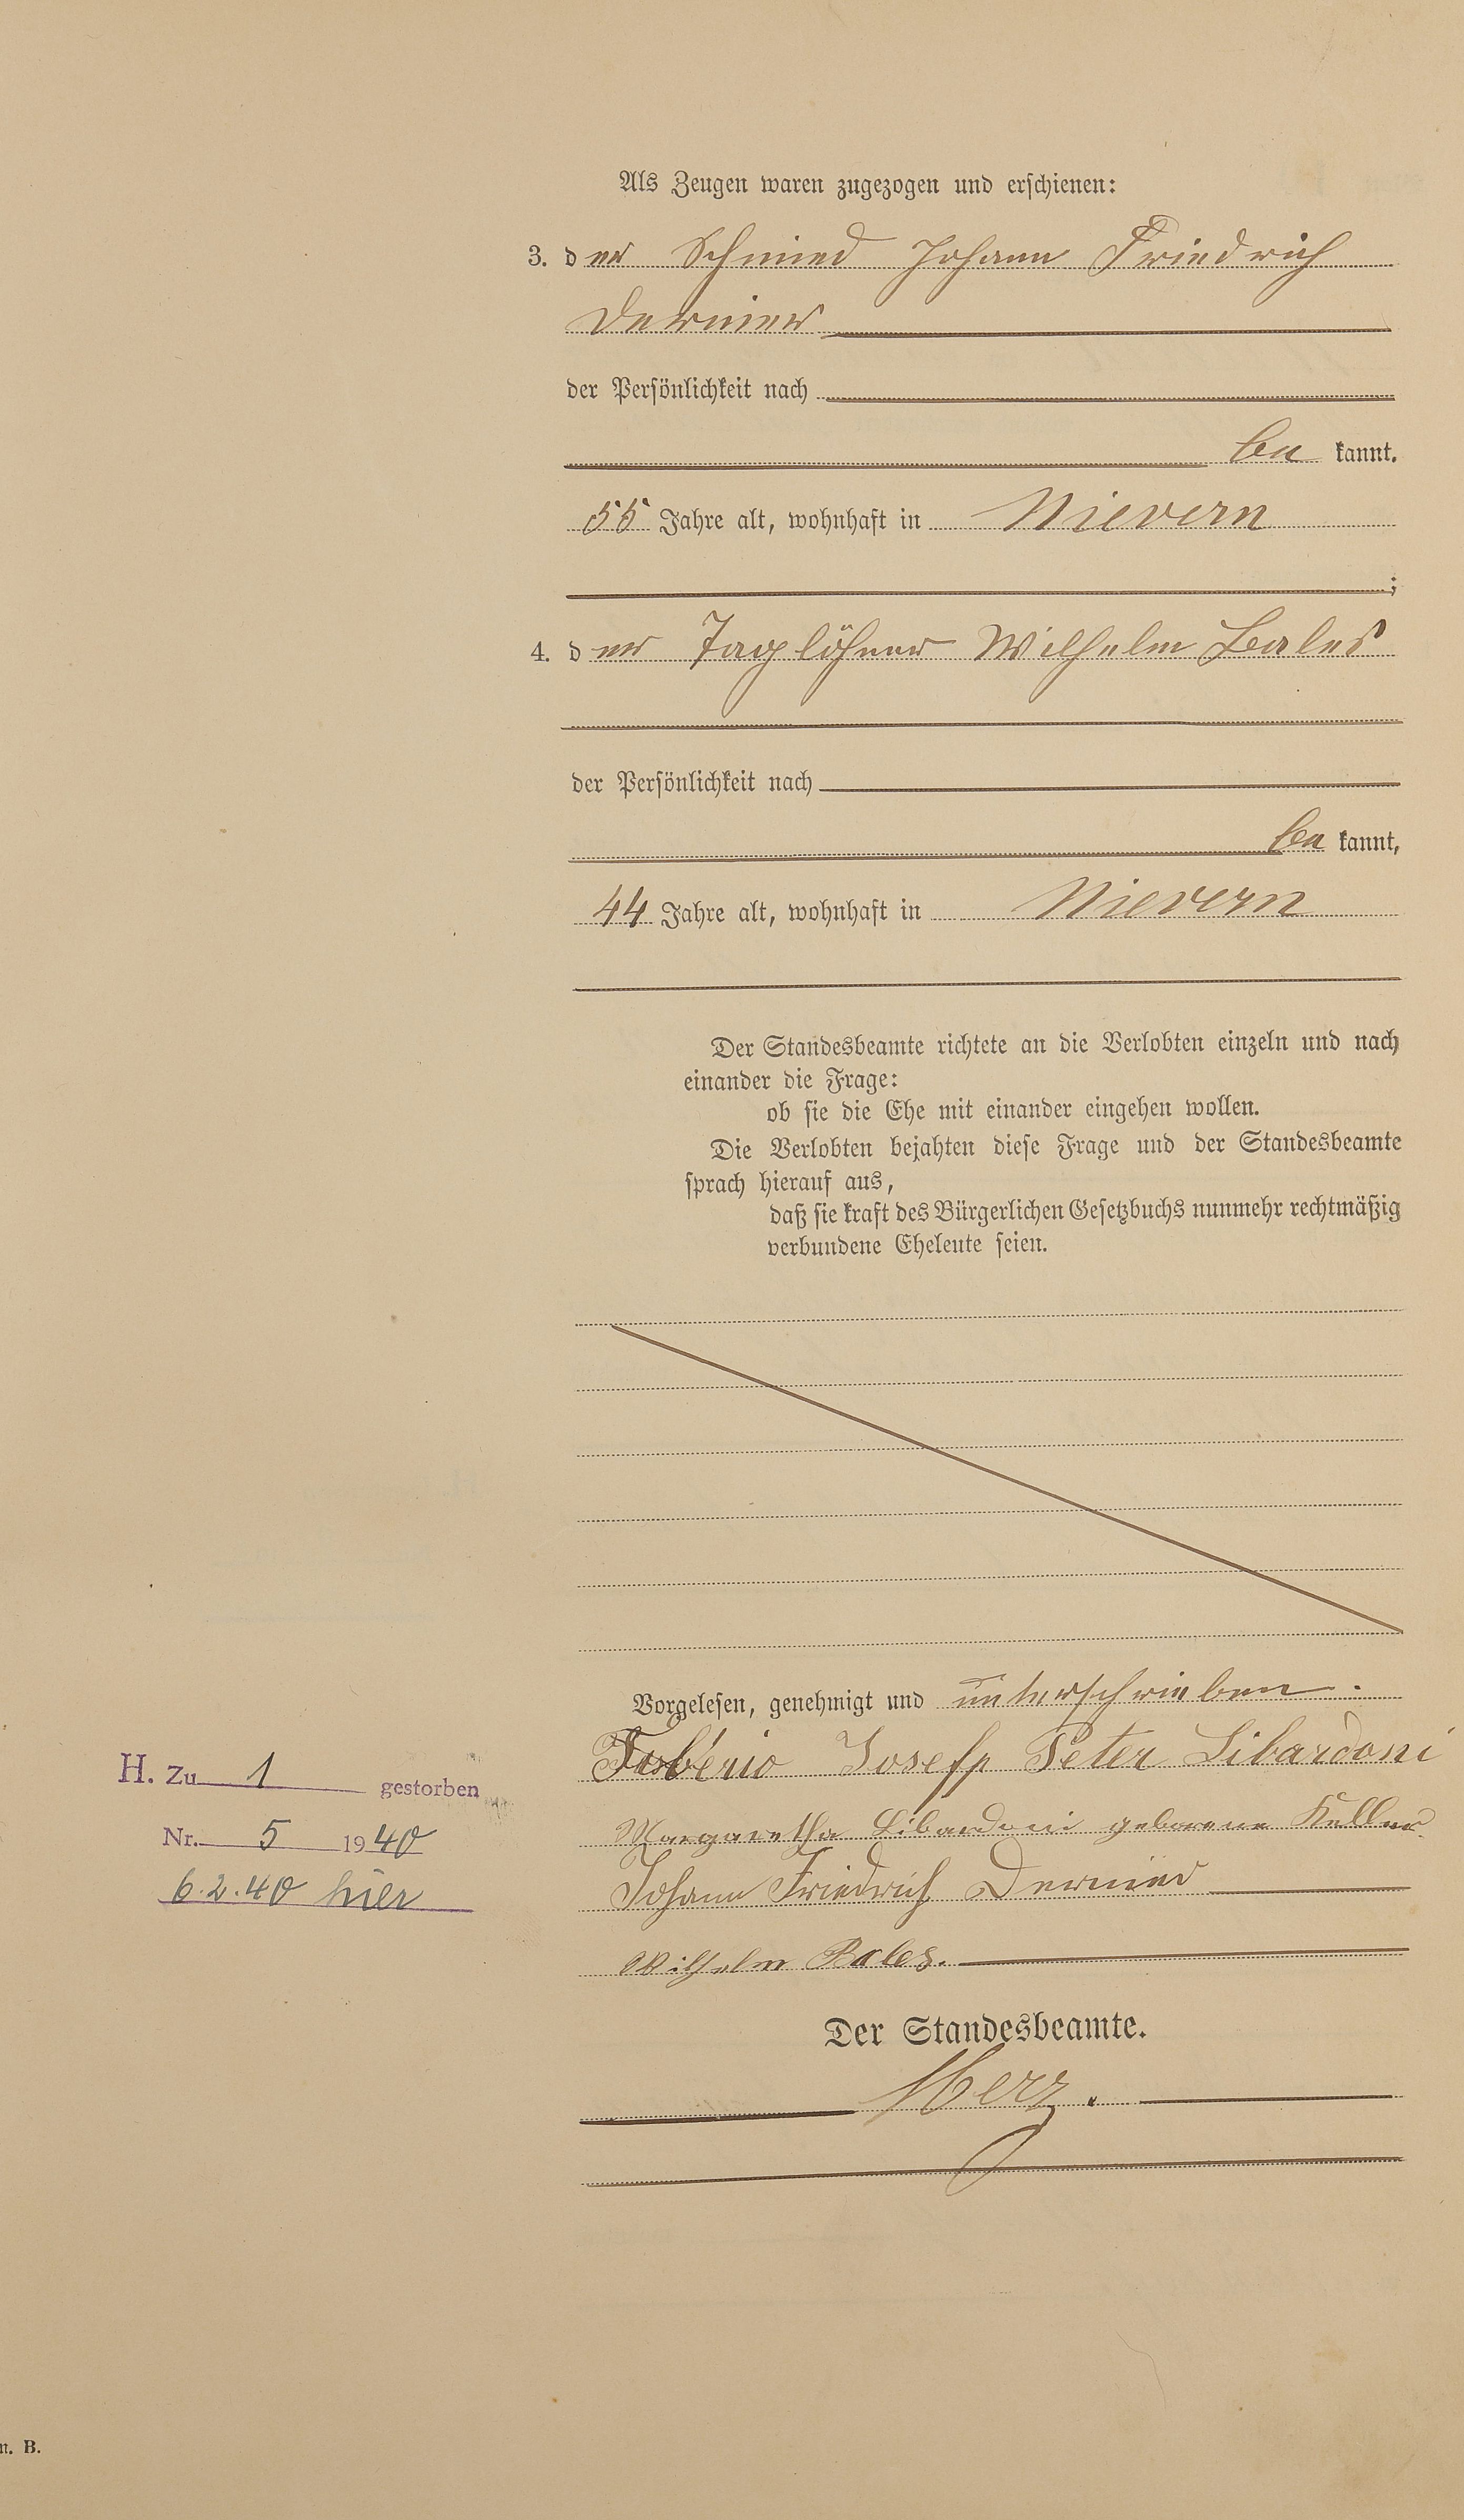 Als Zeugen waren zugezogen und erschienen:
3. der Schmied Johann Friedrich
Dernier
der Persönlichkeit nach
be kannt.
55 Jahre alt, wohnhaft in Nievern
;
4. der Taglöhner Wilhelm Bales
der Persönlichkeit nach
be kannt,
44 Jahre alt, wohnhaft in Nievern
Der Standesbeamte richtete an die Verlobten einzeln und nach
einander die Frage:
ob sie die Ehe mit einander eingehen wollen.
Die Verlobten bejahten diese Frage und der Standesbeamte
sprach hierauf aus,
daß sie kraft des Bürgerlichen Gesetzbuchs nunmehr rechtmäßig
verbundene Eheleute seien.
Vorgelesen, genehmigt und unterschrieben.
Josefp Peter Libardoni
Margaretha Libardoni geborene Keller
Johann Friedrich Dernier
Wilhelm Bales.
Der Standesbeamte.
Merz.
H. Zu 1 gestorben
Nr. 5 1940
6.2.40 hier
n. B.